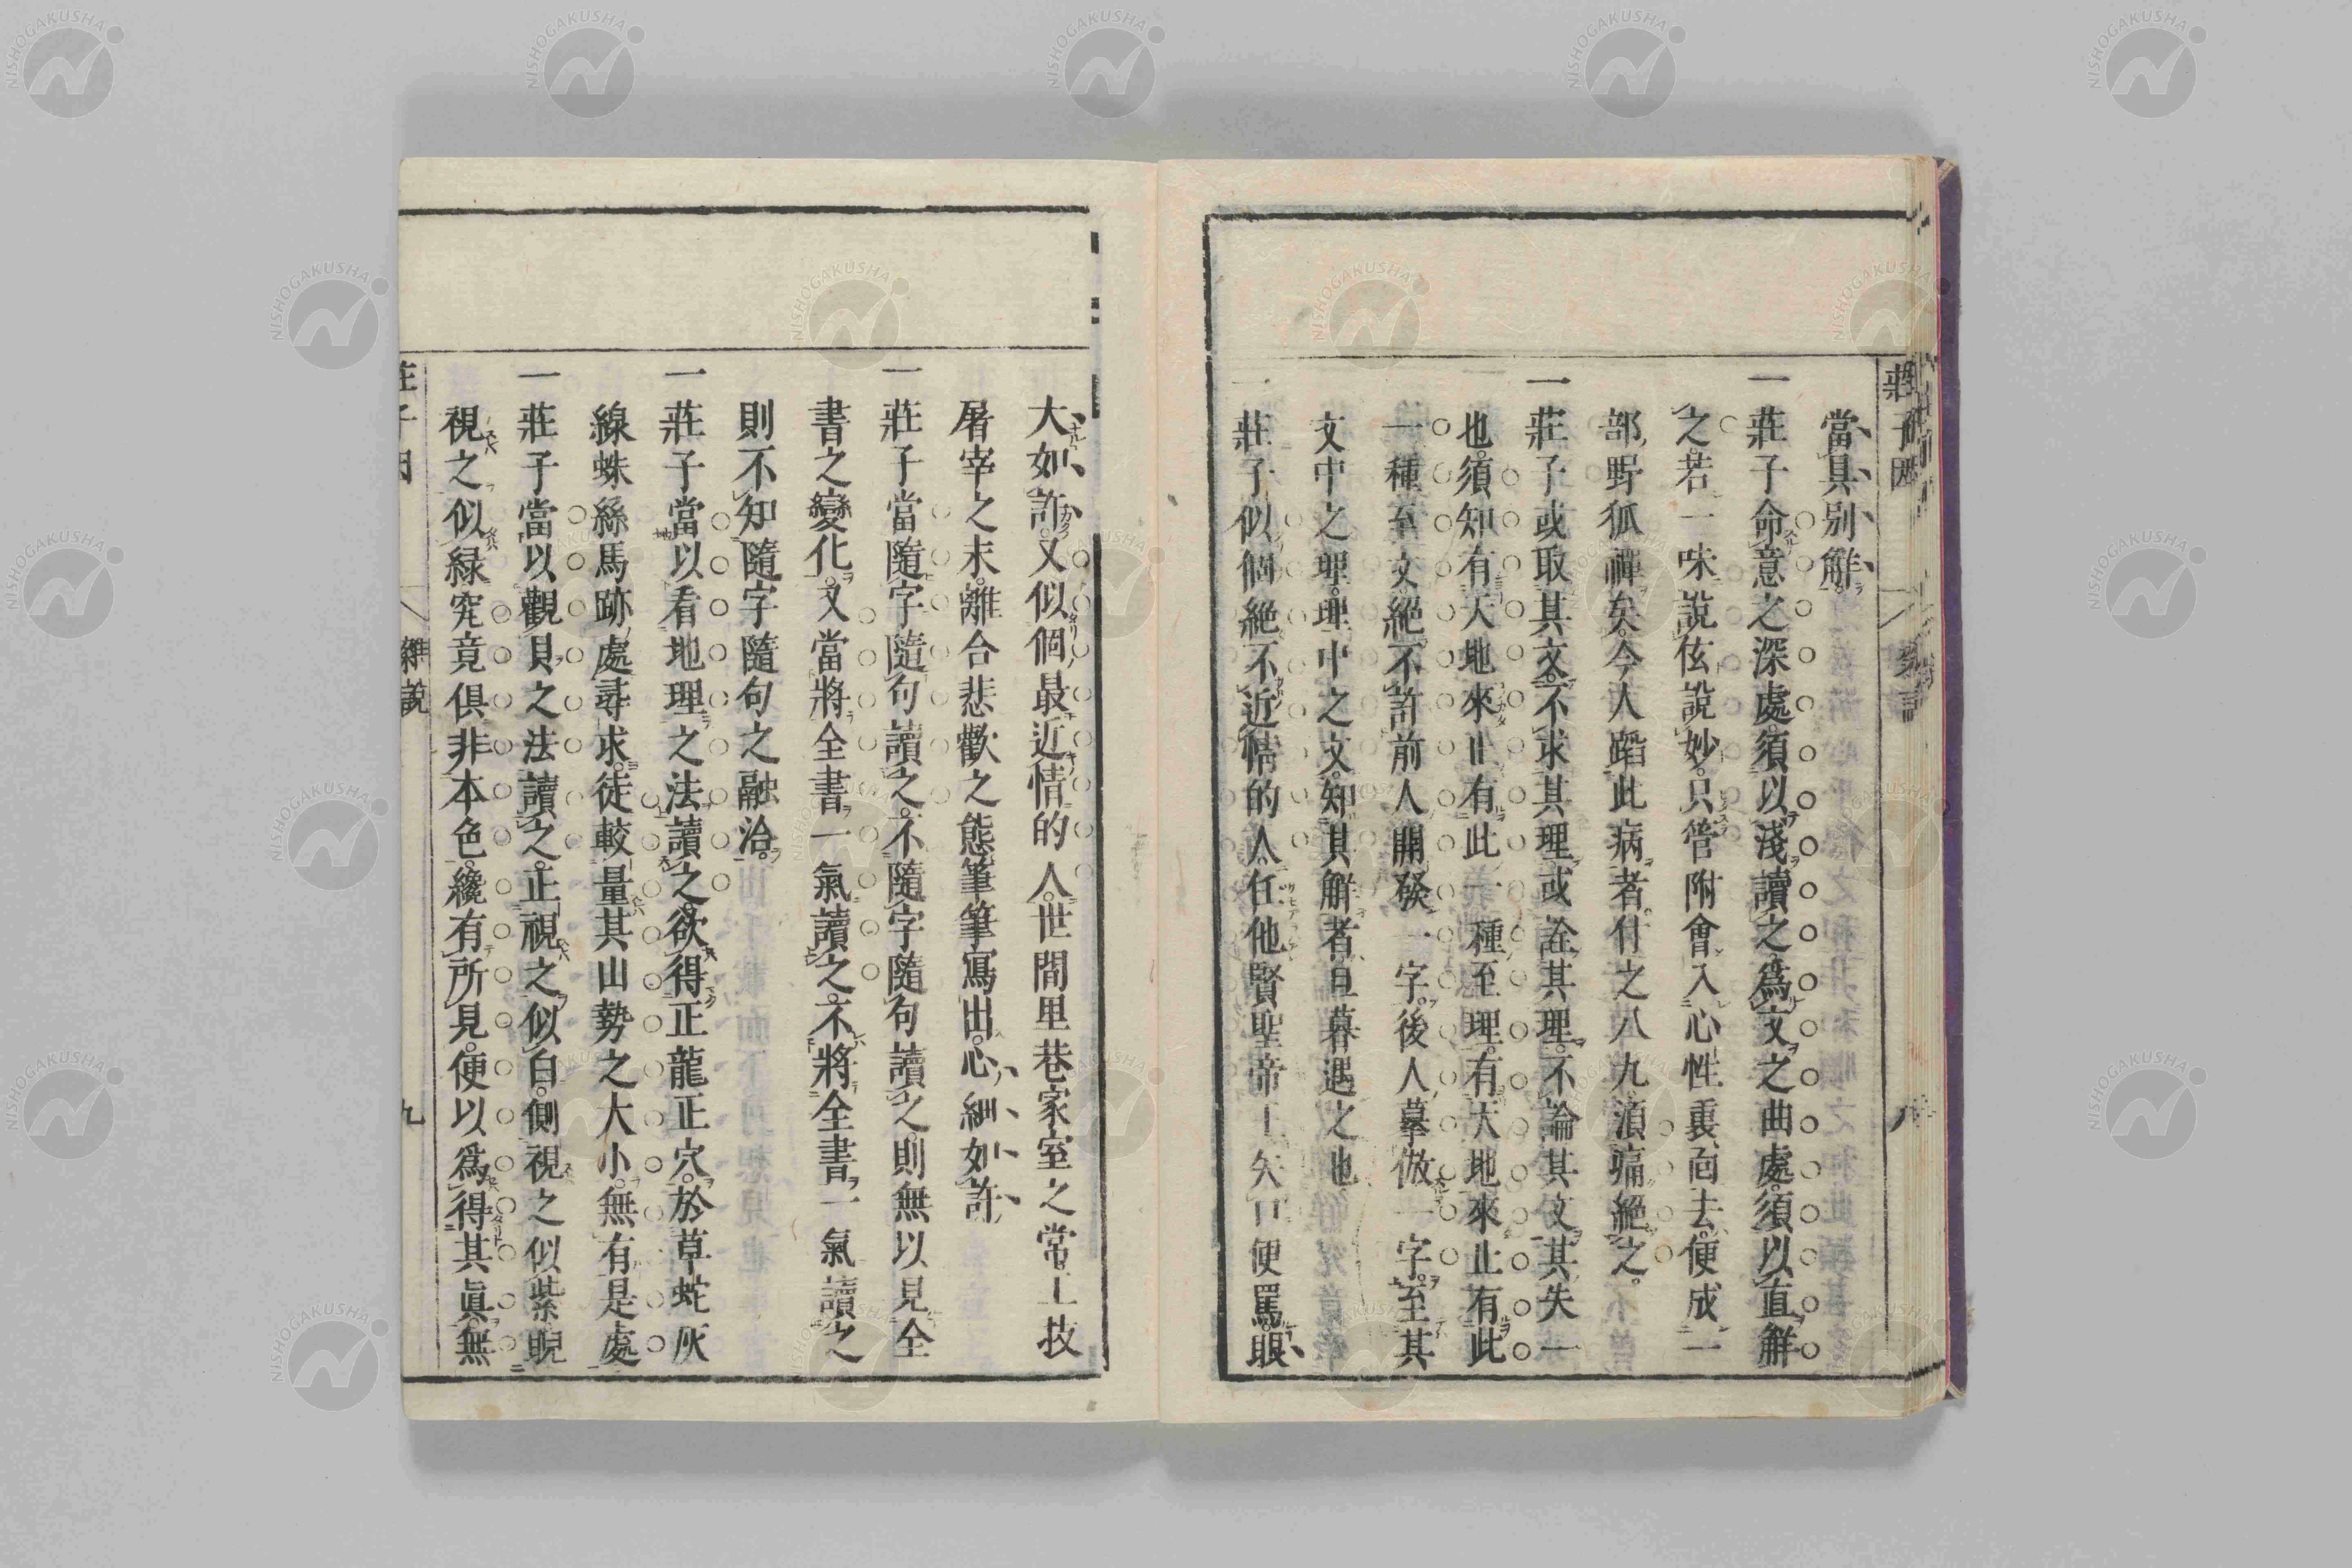 當具別解。
一莊子命意之深處。須以淺讀之。爲文之曲處。須以直解
之。若一味說玄說妙。只管附會入心性裏面去。便成一
部野狐禪矣。今人蹈此病者。什之八九。須痛絕之。
一莊子或取其文。不求其理。或詮其理。不論其文。其失一
也。須知有天地來止有此一種至理。有天地來止有此
一種至文。絕不許前人開發一字。後人摹倣一字。至其
文中之理。理中之文。知其解者。旦暮遇之也。
一莊子似個絕不近情的人。任他賢聖帝王矢口便罵。眼
大如許。又似個最近情的人。世間里巷家室之常。工技
屠宰之末。離合悲歡之態。筆筆寫出。心細如許。
一莊子當隨字隨句讀之。不隨字隨句讀之。則無以見全
書之變化。又當將全書一氣讀之。不將全書一氣讀之
則不知隨字隨句之融洽。
一莊子當以看地理之法讀之。欲得正龍正穴。於草蛇灰
線蛛絲馬跡處尋求。徒較量其山勢之大小。無有是處
一莊子當以觀貝之法讀之。正視之似白。側視之似紫。睨
視之似綠。究竟俱非本色。纔有所見。便以爲得其眞。無
莊子因
雜說
九
NISHOGAKUSHA